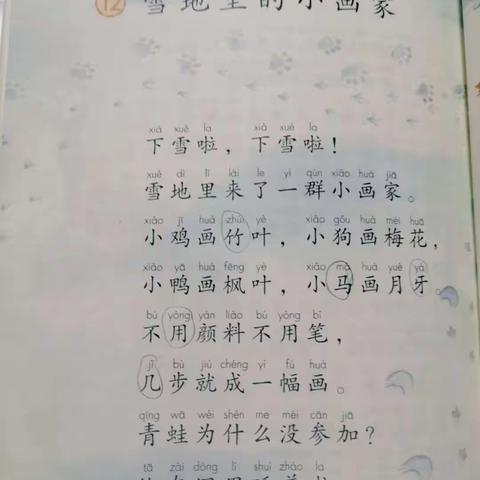 12 雪地里的小画家
xià xuě la xià xuě la
下雪啦，下雪啦！
xuě dì lǐ lái le yì qún xiǎo huà jiā
雪地里来了一群小画家。
xiǎo jī huà zhú yè xiǎo gǒu huà méi huā
小鸡画竹叶，小狗画梅花，
xiǎo yā huà fēng yè xiǎo mǎ huà yuè yá
小鸭画枫叶，小马画月牙。
bú yòng yán liào bú yòng bǐ
不用颜料不用笔，
jǐ bù jiù chéng yì fú huà
几步就成一幅画。
qīng wā wèi shén me méi cān jiā
青蛙为什么没参加？
tā zài dòng lǐ shuì zháo la